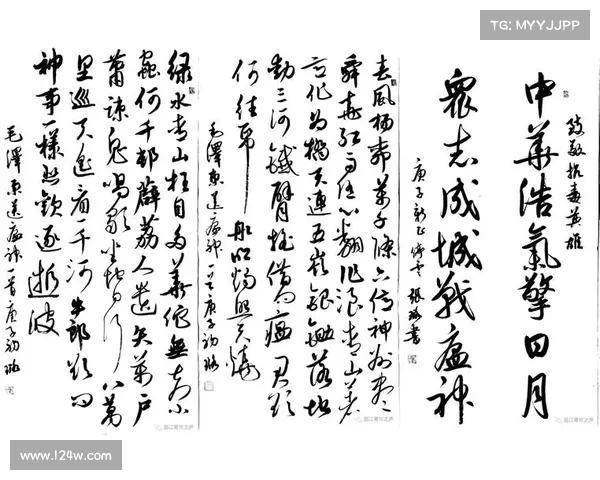 TG: MYYJJPP
致敬抗毒英雄
中華浩氣擎日月
衆志成城戰瘟神
庚子新正 張璐書
春風楊柳萬千條六億神州盡
舜堯紅雨隨心翻作浪青山著
意化為橋天連五嶺銀鋤落地
動三河鐵臂搖借問瘟君欲
何往紙船明燭照天燒
毛澤東送瘟神一首庚子初璐
綠水青山枉自多華佗無奈小
蟲何千邨薜荔人遺矢萬戶
蕭疎鬼唱歌坐地日行八萬
里巡天遙看一千河牛郎欲問
神事一樣悲歡逐逝波
毛澤東送瘟神一首庚子初璐
www.124w.com